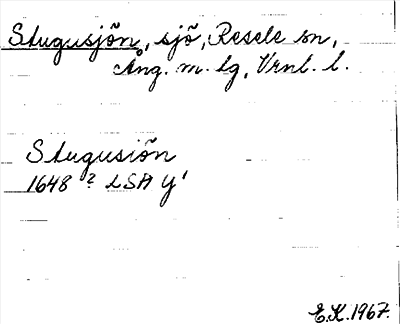 Stugusjön, sjö, Resele sn,
Ång. m. lg, Vrnl. l.
Stugusiön
1648 ? LSA Y'
E.K. 1967.